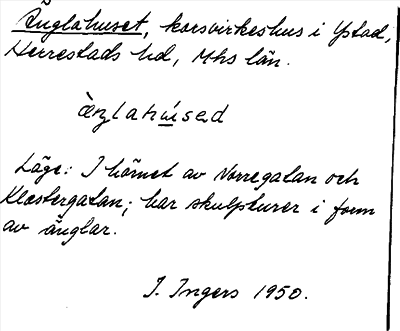 Änglahuset, korsvirkeshus i Ystad,
Herrestads hd, Mhs län.
àŋlahúsəd
Läge: I hörnet av Norregatan och
Klostergatan; har skulpturer i form
av änglar.
I. Ingers 1950.